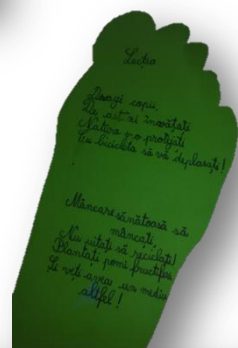 Lecția
Dragi copii,
De azi să învățați
Natura s-o protejați
Cu bicicleta să vă deplasați!
Mâncare sănătoasă să
mâncați,
Nu uitați să reciclați!
Plantați pomi fructiferi
Și veți avea un mediu
altfel!